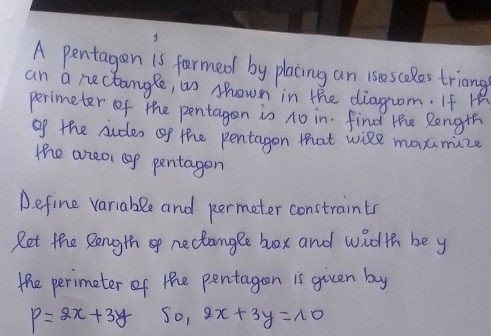 A pentagon is formed by placing an isosceles triang
an a rectangle, as shown in the diagrom. If th
perimeter of the pentagon is 10 in. find the length
of the sides of the pentagon that will maximize
the area of pentagon
Define variable and permeter constraints
let the length of rectangle box and width be y
the perimeter of the pentagon is given by
P = 2x + 3y So, 2x + 3y = 10